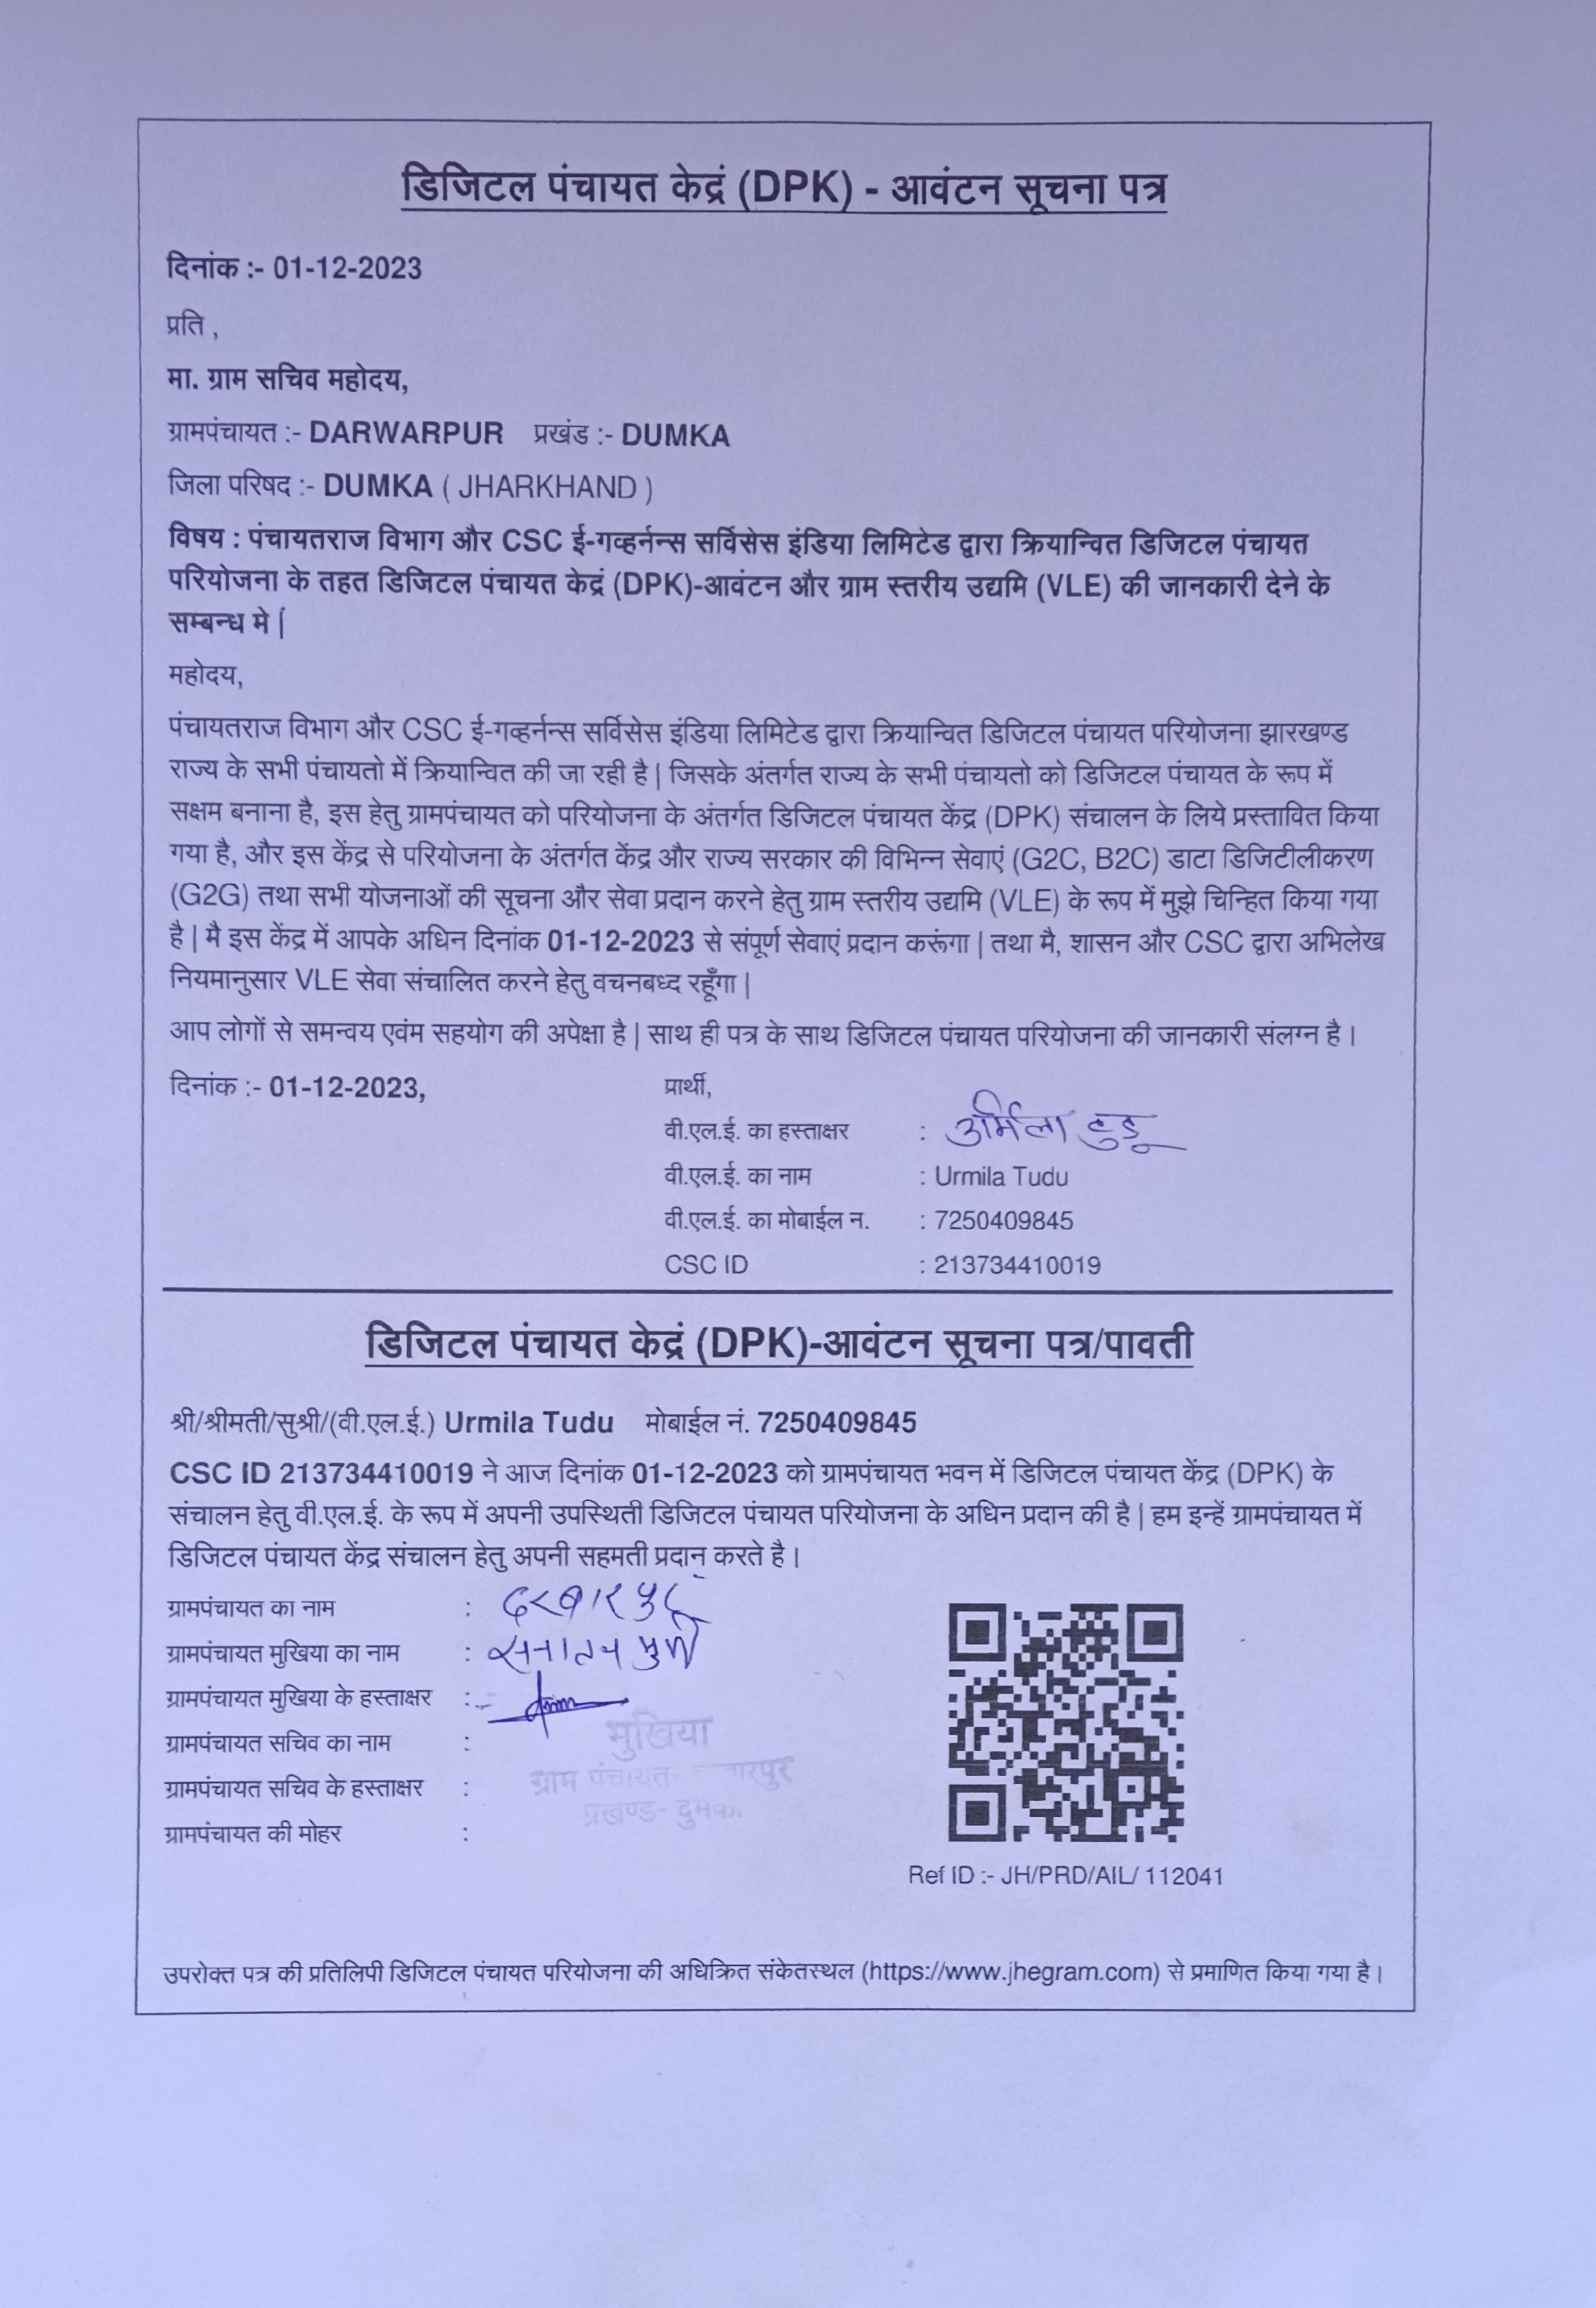 डिजिटल पंचायत केद्रं (DPK) - आवंटन सूचना पत्र
दिनांक :- 01-12-2023
प्रति ,
मा. ग्राम सचिव महोदय,
ग्रामपंचायत :- DARWARPUR प्रखंड :- DUMKA
जिला परिषद :- DUMKA ( JHARKHAND )
विषय : पंचायतराज विभाग और CSC ई-गव्हर्नन्स सर्विसेस इंडिया लिमिटेड द्वारा क्रियान्वित डिजिटल पंचायत
परियोजना के तहत डिजिटल पंचायत केद्रं (DPK)-आवंटन और ग्राम स्तरीय उद्यमि (VLE) की जानकारी देने के
सम्बन्ध मे |
महोदय,
पंचायतराज विभाग और CSC ई-गव्हर्नन्स सर्विसेस इंडिया लिमिटेड द्वारा क्रियान्वित डिजिटल पंचायत परियोजना झारखण्ड
राज्य के सभी पंचायतो में क्रियान्वित की जा रही है | जिसके अंतर्गत राज्य के सभी पंचायतो को डिजिटल पंचायत के रूप में
सक्षम बनाना है, इस हेतु ग्रामपंचायत को परियोजना के अंतर्गत डिजिटल पंचायत केंद्र (DPK) संचालन के लिये प्रस्तावित किया
गया है, और इस केंद्र से परियोजना के अंतर्गत केंद्र और राज्य सरकार की विभिन्न सेवाएं (G2C, B2C) डाटा डिजिटीलीकरण
(G2G) तथा सभी योजनाओं की सूचना और सेवा प्रदान करने हेतु ग्राम स्तरीय उद्यमि (VLE) के रूप में मुझे चिन्हित किया गया
है | मै इस केंद्र में आपके अधिन दिनांक 01-12-2023 से संपूर्ण सेवाएं प्रदान करूंगा | तथा मै, शासन और CSC द्वारा अभिलेख
नियमानुसार VLE सेवा संचालित करने हेतु वचनबध्द रहूँगा |
आप लोगों से समन्वय एवंम सहयोग की अपेक्षा है | साथ ही पत्र के साथ डिजिटल पंचायत परियोजना की जानकारी संलग्न है |
दिनांक :- 01-12-2023, प्रार्थी,
वी.एल.ई. का हस्ताक्षर : उर्मिला टुडू
वी.एल.ई. का नाम : Urmila Tudu
वी.एल.ई. का मोबाईल न. : 7250409845
CSC ID : 213734410019
डिजिटल पंचायत केद्रं (DPK)-आवंटन सूचना पत्र/पावती
श्री/श्रीमती/सुश्री/(वी.एल.ई.) Urmila Tudu मोबाईल नं. 7250409845
CSC ID 213734410019 ने आज दिनांक 01-12-2023 को ग्रामपंचायत भवन में डिजिटल पंचायत केंद्र (DPK) के
संचालन हेतु वी.एल.ई. के रूप में अपनी उपस्थिती डिजिटल पंचायत परियोजना के अधिन प्रदान की है | हम इन्हें ग्रामपंचायत में
डिजिटल पंचायत केंद्र संचालन हेतु अपनी सहमती प्रदान करते है |
ग्रामपंचायत का नाम : दरबारपुर
ग्रामपंचायत मुखिया का नाम : सनातन मुर्मू
ग्रामपंचायत मुखिया के हस्ताक्षर :
मुखिया
ग्रामपंचायत सचिव का नाम :
ग्राम पंचायत-
ग्रामपंचायत सचिव के हस्ताक्षर :
प्रखण्ड- दुमका
ग्रामपंचायत की मोहर :
Ref ID :- JH/PRD/AIL/ 112041
उपरोक्त पत्र की प्रतिलिपी डिजिटल पंचायत परियोजना की अधिक्रित संकेतस्थल (https://www.jhegram.com) से प्रमाणित किया गया है |